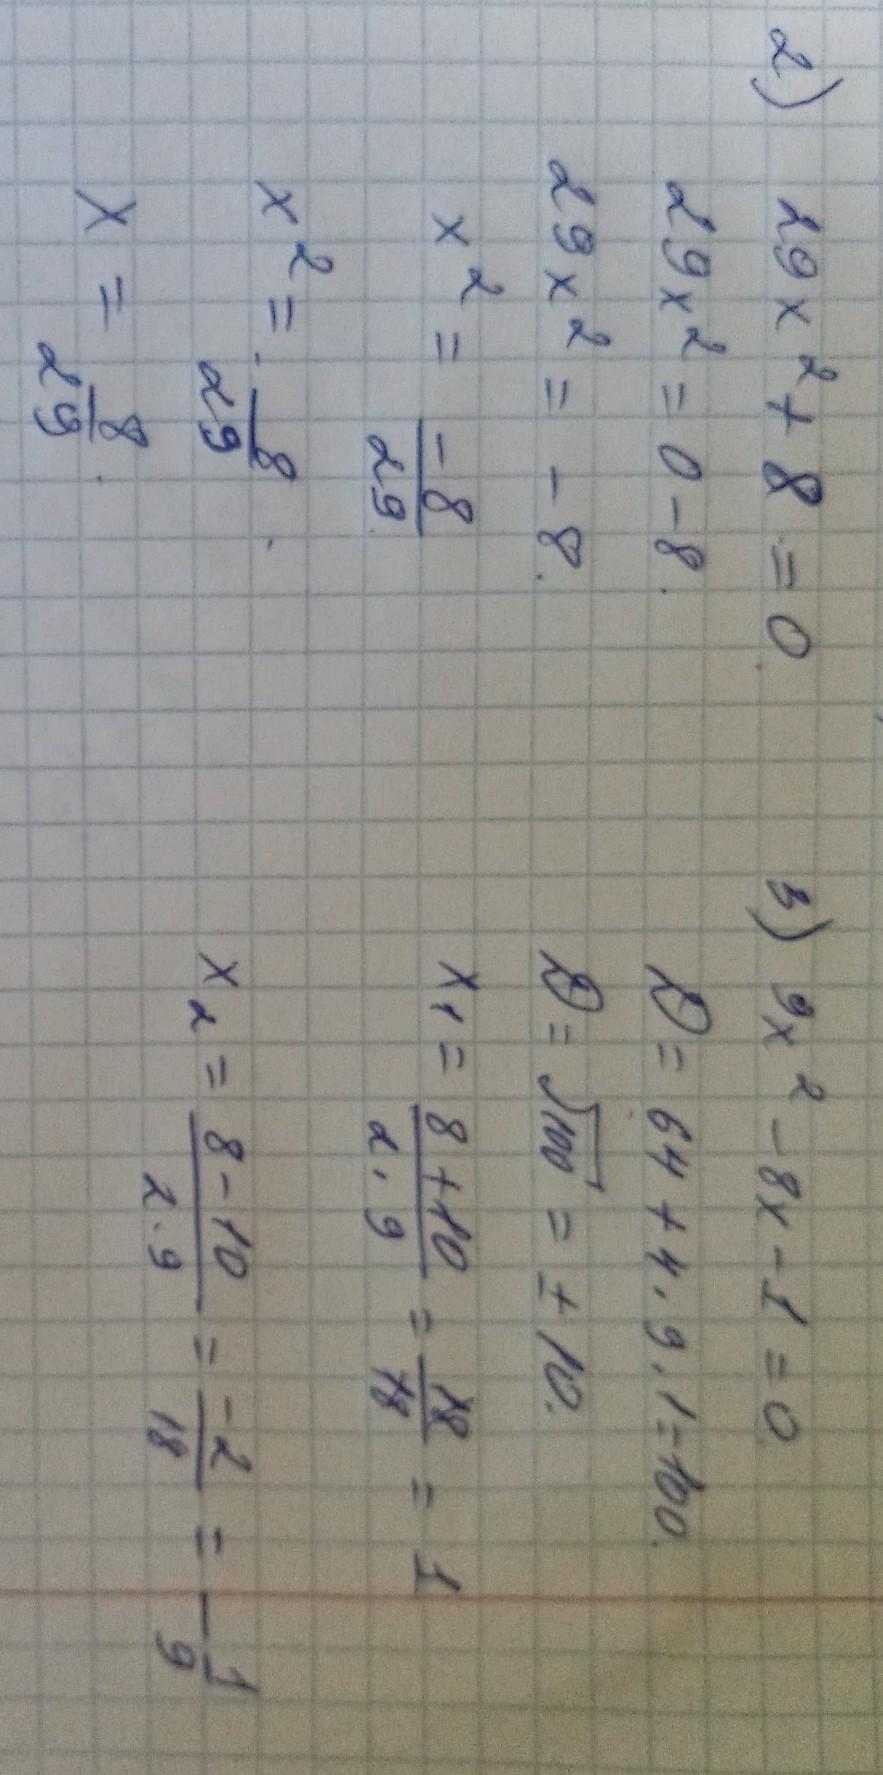 2) 29x² + 8 = 0
29x² = 0 - 8.
29x² = - 8.
x² = -8/29
x² = 8/29.
x = 8/29.
3) 9x² - 8x - 1 = 0
D = 64 + 4 · 9 · 1 = 100.
D = √100 = ± 10.
x₁ = 8 + 10 / 2 · 9 = 18/18 = 1
x₂ = 8 - 10 / 2 · 9 = -2/18 = - 1/9